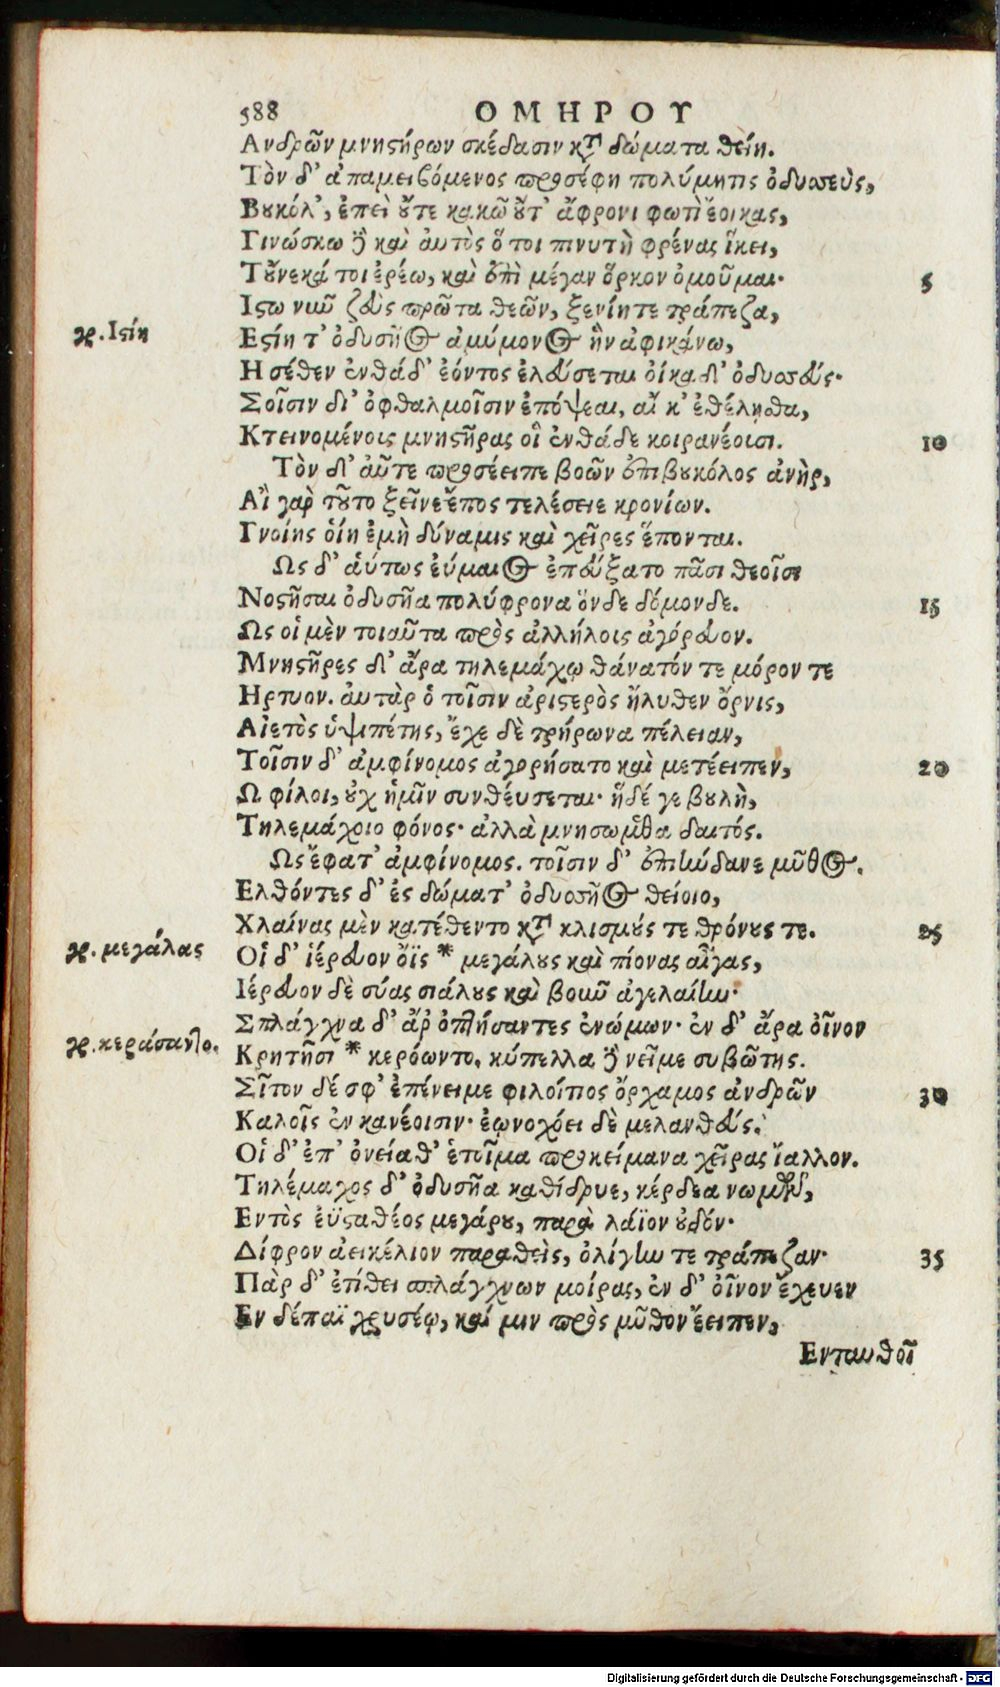 588 ΟΜΗΡΟΥ
Ανδρῶν μνηστήρων σκέδασιν κτ̀ δώματα θείη.
Τὸν δ' ἀπαμειβόμενος προσέφη πολύμητις ὀδυσσεὺς,
Βουκόλ', ἐπεὶ οὔτε κακῶ οὔτ' ἄφρονι φωτὶ ἔοικας,
Γινώσκω δὲ καὶ αὐτὸς ὅ τοι πινυτὴ φρένας ἵκει,
Τοὔνεκά τοι ἐρέω, καὶ ἐπὶ μέγαν ὅρκον ὀμοῦμαι· 5
Ιστω νῦν ζεὺς πρῶτα θεῶν, ξενίη τε τράπεζα,
γρ. Ιστίη
Εστίη τ' ὀδυσῆϊος ἀμύμονος ἣν ἀφικάνω,
Η σέθεν ἐνθάδ' ἐόντος ἐλεύσεται οἴκαδ' ὀδυσσεύς·
Σοῖσιν δ' ὀφθαλμοῖσιν ἐπόψεαι, αἴ κ' ἐθέλησθα,
Κτεινομένοις μνηστῆρας οἳ ἐνθάδε κοιρανέοισι. 10
Τὸν δ' αὖτε προσέειπε βοῶν ἐπιβουκόλος ἀνὴρ,
Αἲ γαρ τοῦτο ξεῖνε ἔπος τελέσειε κρονίων.
Γνοίης οἵη ἐμὴ δύναμις καὶ χεῖρες ἕπονται.
Ως δ' αὔτως εὔμαιος ἐπεύξατο πᾶσι θεοῖσι
Νοστῆσαι ὀδυσῆα πολύφρονα ὅνδε δόμονδε. 15
Ως οἱ μὲν τοιαῦτα πρὸς ἀλλήλοις ἀγόρευον.
Μνηστῆρες δ' ἄρα τηλεμάχῳ θάνατόν τε μόρον τε
Ηρτυον. αὐτὰρ ὁ τοῖσιν ἀριστερὸς ἤλυθεν ὄρνις,
Αἰετὸς ὑψιπέτης, ἔχε δὲ τρήρωνα πέλειαν,
Τοῖσιν δ' ἀμφίνομος ἀγορήσατο καὶ μετέειπεν, 20
Ω φίλοι, οὐχ ἡμῖν συνθεύσεται· ἥδέ γε βουλὴ,
Τηλεμάχοιο φόνος· ἀλλὰ μνησώμεθα δαιτός.
Ως ἔφατ' ἀμφίνομος. τοῖσιν δ' ἐπιήνδανε μῦθος.
Ελθόντες δ' ἐς δώματ' ὀδυσσῆος θείοιο,
Χλαίνας μὲν κατέθεντο κτ̀ κλισμούς τε θρόνους τε. 25
γρ. μεγάλας
Οἱ δ' ἱέρευον ὄϊς * μεγάλους καὶ πίονας αἶγας,
Ιέρευον δὲ σύας σιάλους καὶ βοῦν ἀγελαίην·
Σπλάγχνα δ' ἄρ' ὀπτήσαντες ἐνώμων· ἐν δ' ἄρα οἶνον
γρ. κεράσαντο.
Κρητῆσι * κερόωντο, κύπελλα δὲ νεῖμε συβώτης.
Σῖτον δέ σφ' ἐπένειμε φιλοίτιος ὄρχαμος ἀνδρῶν 30
Καλοῖς ἐν κανέοισιν· ἐῳνοχόει δὲ μελανθεύς.
Οἱ δ' ἐπ' ὀνείαθ' ἑτοῖμα προκείμανα χεῖρας ἴαλλον.
Τηλέμαχος δ' ὀδυσῆα καθίδρυε, κέρδεα νωμῶν,
Εντὸς ἐϋσταθέος μεγάρου, παρὰ λάϊον οὐδόν·
Δίφρον ἀεικέλιον παραθεὶς, ὀλίγην τε τράπεζαν· 35
Πὰρ δ' ἐτίθει σπλάγχνων μοίρας, ἐν δ' οἶνον ἔχευεν
Εν δέπαϊ χρυσέῳ, καί μιν πρὸς μῦθον ἔειπεν,
Ενταυθοῖ
Digitalisierung gefördert durch die Deutsche Forschungsgemeinschaft - DFG